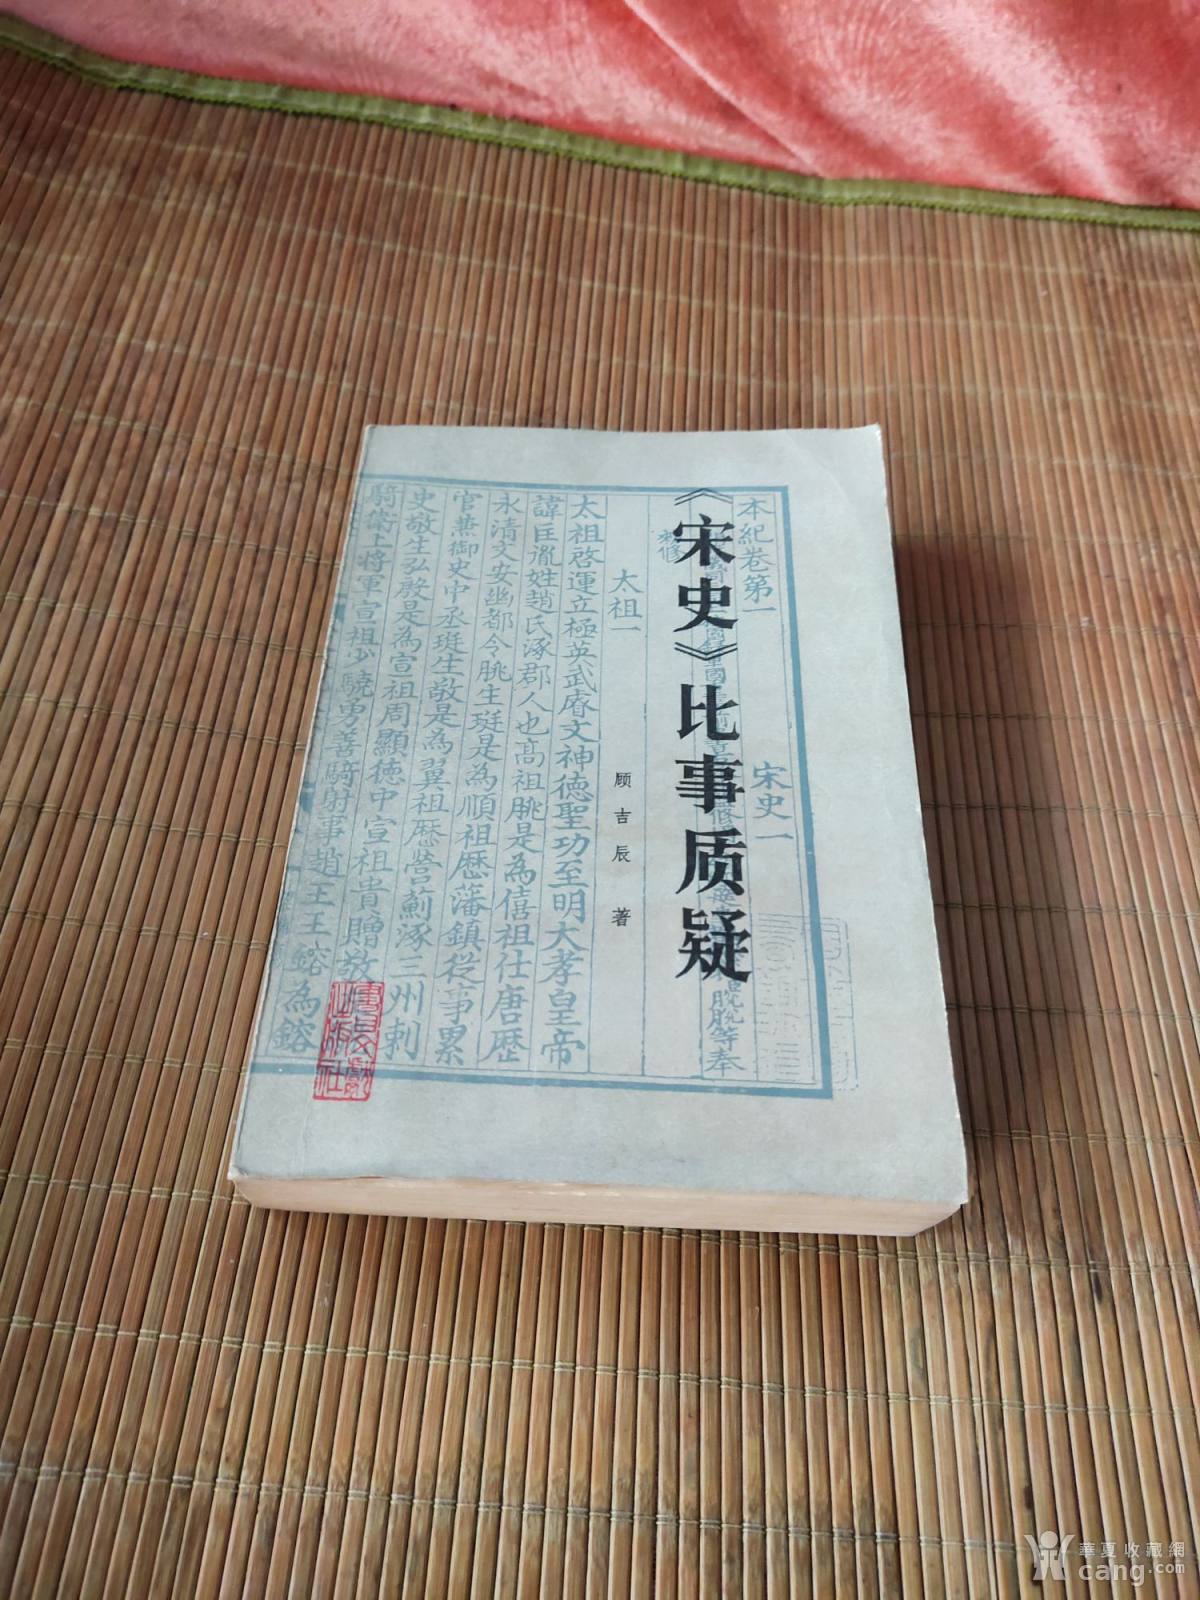 《宋史》比事质疑
顾吉辰 著
本紀卷第一
宋史一
脫脫等奉
勅修
太祖一
太祖啓運立極英武睿文神德聖功至明大孝皇帝
諱匡胤姓趙氏涿郡人也高祖朓是為僖祖仕唐歷
永清文安幽都令朓生珽是為順祖歷藩鎮從事累
官兼御史中丞珽生敬是為翼祖歷營薊涿三州刺
史敬生弘殷是為宣祖周顯德中宣祖貴贈敬
騎衛上將軍宣祖少驍勇善騎射事趙王王鎔為鎔
華夏收藏網
cang.com